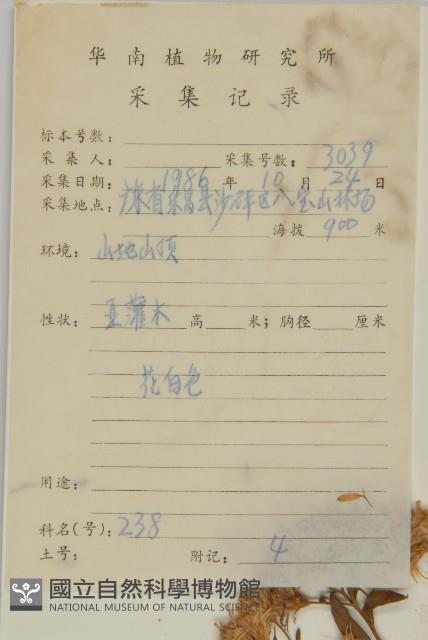 华南植物研究所
采集记录
标本号数：
采集人： 采集号数： 3039
采集日期： 1986 年 10 月 24 日
采集地点： 广东省乐昌县沙坪区八宝山林场
海拨 900 米
环境： 山地山顶
性状： 亚灌木 高 米；胸径 厘米
花白色
用途：
科名(号)： 238
土号： 附记： 4
國立自然科學博物館
NATIONAL MUSEUM OF NATURAL SCIENCE